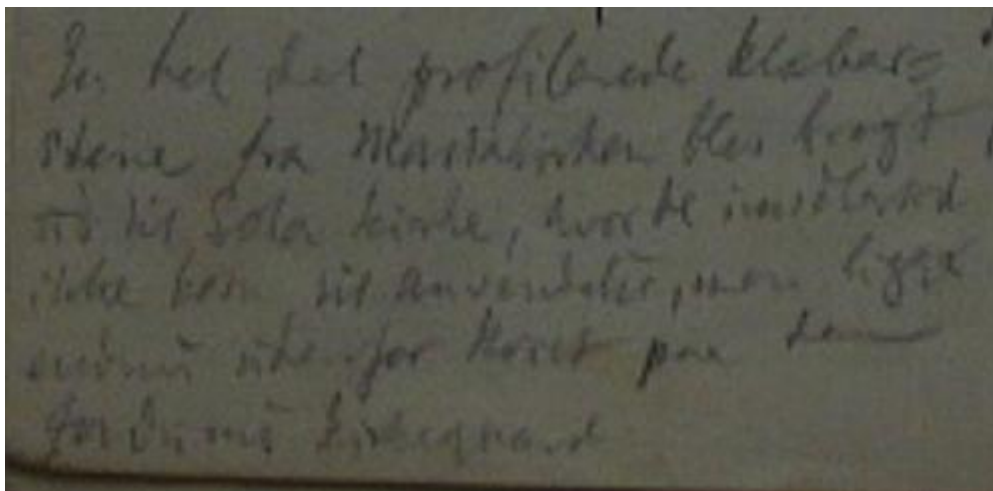 En hel del profilerede Kleber=
stene fra Mariakirken blev bragt
ud til Sola kirke, hvor de imidlertid
ikke kom til anvendelse, men ligger
endnu udenfor Koret paa den
Kirkegaard